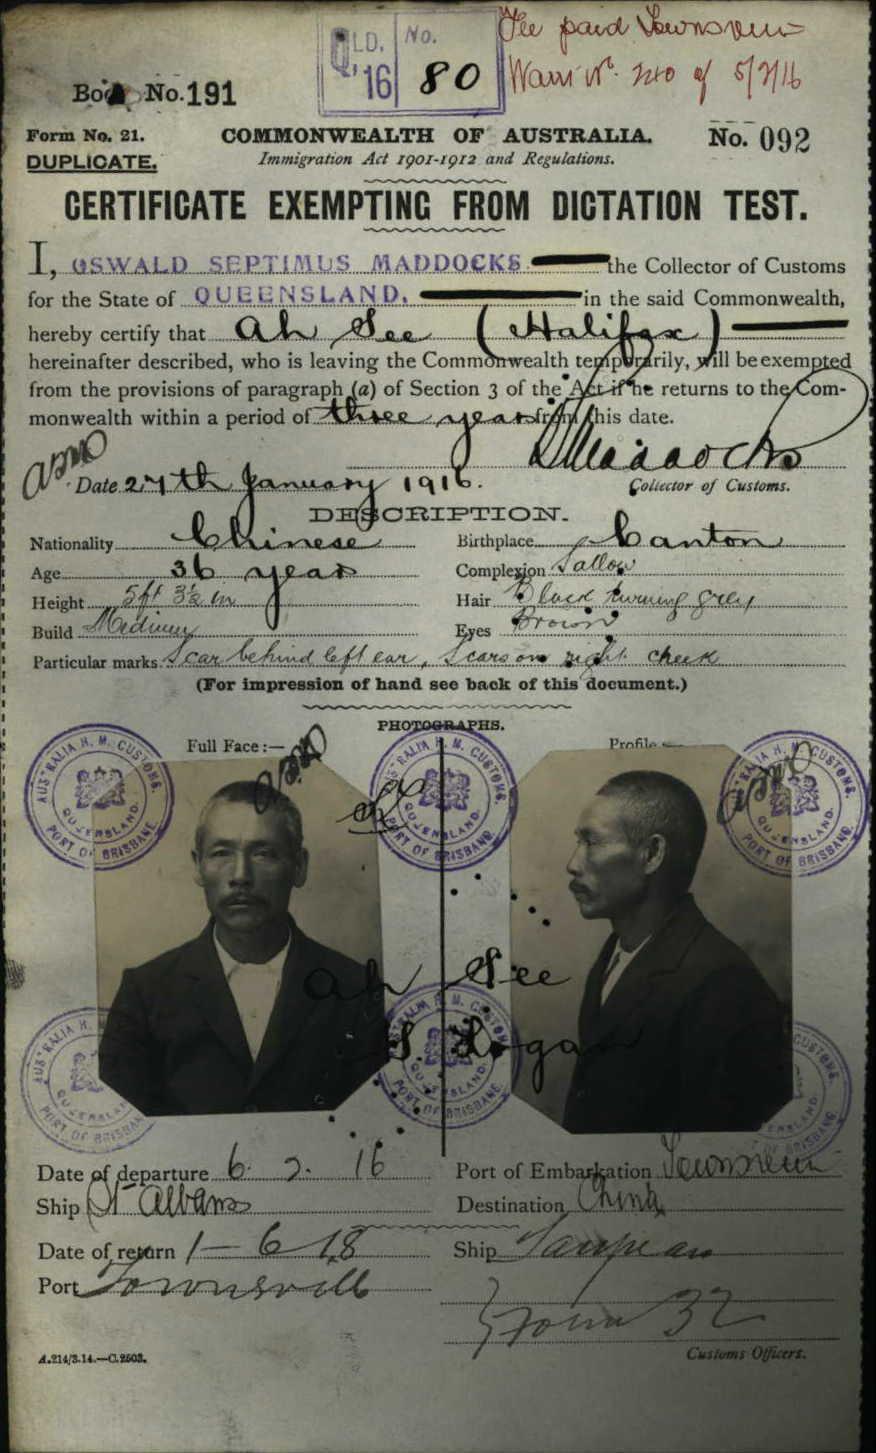 QLD. No.
'16 80
Fee paid Townsville
Book No. 191
Form No. 21.
COMMONWEALTH OF AUSTRALIA.
No. 092
DUPLICATE.
Immigration Act 1901-1912 and Regulations.
CERTIFICATE EXEMPTING FROM DICTATION TEST.
I, OSWALD SEPTIMUS MADDOCKS the Collector of Customs
for the State of QUEENSLAND. in the said Commonwealth,
hereby certify that Ah See (Halifax)
hereinafter described, who is leaving the Commonwealth temporarily, will be exempted
from the provisions of paragraph (a) of Section 3 of the Act if he returns to the Com-
monwealth within a period of three years from this date.
Maddocks
Date 27th January 1916.
Collector of Customs.
DESCRIPTION.
Nationality Chinese
Birthplace Canton
Age 36 years
Complexion Sallow
Height 5ft 3½ in
Hair Black turning grey
Build Medium
Eyes Brown
Particular marks Scar behind left ear, Scars on right cheek
(For impression of hand see back of this document.)
PHOTOGRAPHS.
Full Face:—
Profile:—
AUSTRALIA H. M. CUSTOMS. QUEENSLAND. PORT OF BRISBANE
AUSTRALIA H. M. CUSTOMS. QUEENSLAND. PORT OF BRISBANE
AUSTRALIA H. M. CUSTOMS. QUEENSLAND. PORT OF BRISBANE
Ah See
AUSTRALIA H. M. CUSTOMS. QUEENSLAND. PORT OF BRISBANE
AUSTRALIA H. M. CUSTOMS. QUEENSLAND. PORT OF BRISBANE
CUSTOMS. BRISBANE
Date of departure 6. 2. 16
Port of Embarkation Townsville
Ship St Albans
Destination China
Date of return 1-6 18
Ship
Port Townsville
32
A.214/3.14.—C.2503.
Customs Officers.